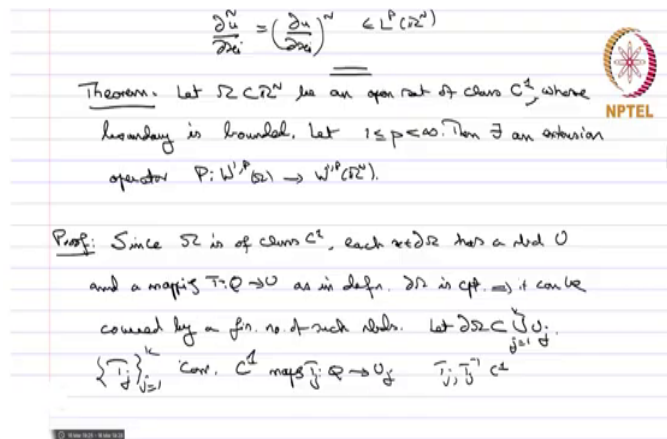 ∂ũ/∂xᵢ = (∂u/∂xᵢ)~ ∈ Lᵖ(ℝᴺ)
Theorem. Let Ω ⊂ ℝᴺ be an open set of class C¹, whose
boundary is bounded. Let 1 ≤ p < ∞. Then ∃ an extension
operator P: W¹,ᵖ(Ω) → W¹,ᵖ(ℝᴺ).
NPTEL
Proof: Since Ω is of class C¹, each x ∈ ∂Ω has a nbd U
and a mapping T: Q → U as in defn. ∂Ω is cpt. ⇒ it can be
covered by a fin. no. of such nbds. Let ∂Ω ⊂ ⋃ⱼ₌₁ᵏ Uⱼ.
{Tⱼ}ⱼ₌₁ᵏ corr. C¹ maps Tⱼ: Q → Uⱼ Tⱼ, Tⱼ⁻¹ C¹